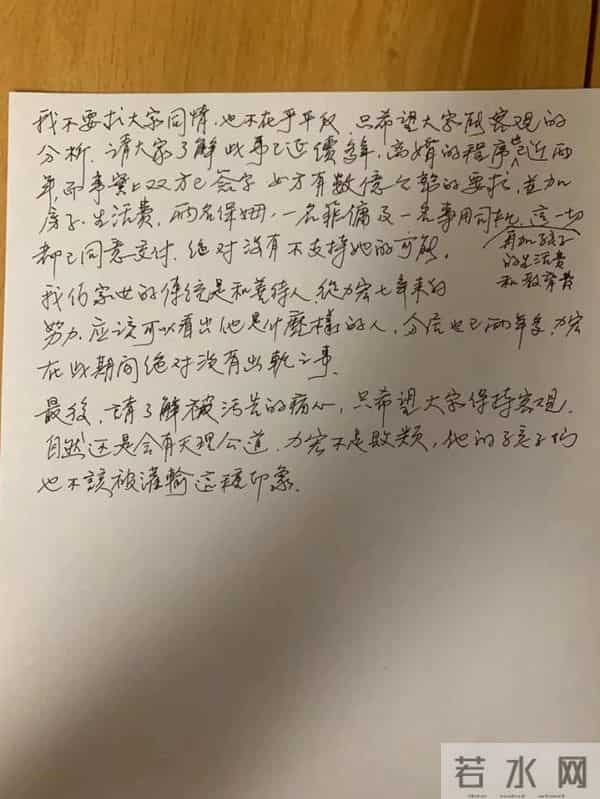 我不要求大家同情,也不在乎平反,只希望大家能客观的
分析.请大家了解此事已延续多年,离婚的程序也近两
年,而事实上双方已签字 女方有数亿金额的要求,並加
房子.生活费,两名保姆,一名菲傭及一名專用司机,這一切
都已同意支付.绝对没有不支持她的可能.
再加孩子
的生活费
和教育费
我们家世的传统是和善待人 從力宏七年来的
努力,应该可以看出他是什麽樣的人,分居也已两年多,力宏
在此期间绝对没有出軌之事.
最後,請了解被污告的痛心,只希望大家保持客观,
自然还是会有天理公道.力宏不是败類,他的孩子们
也不該被灌輸這種印象.
若水网